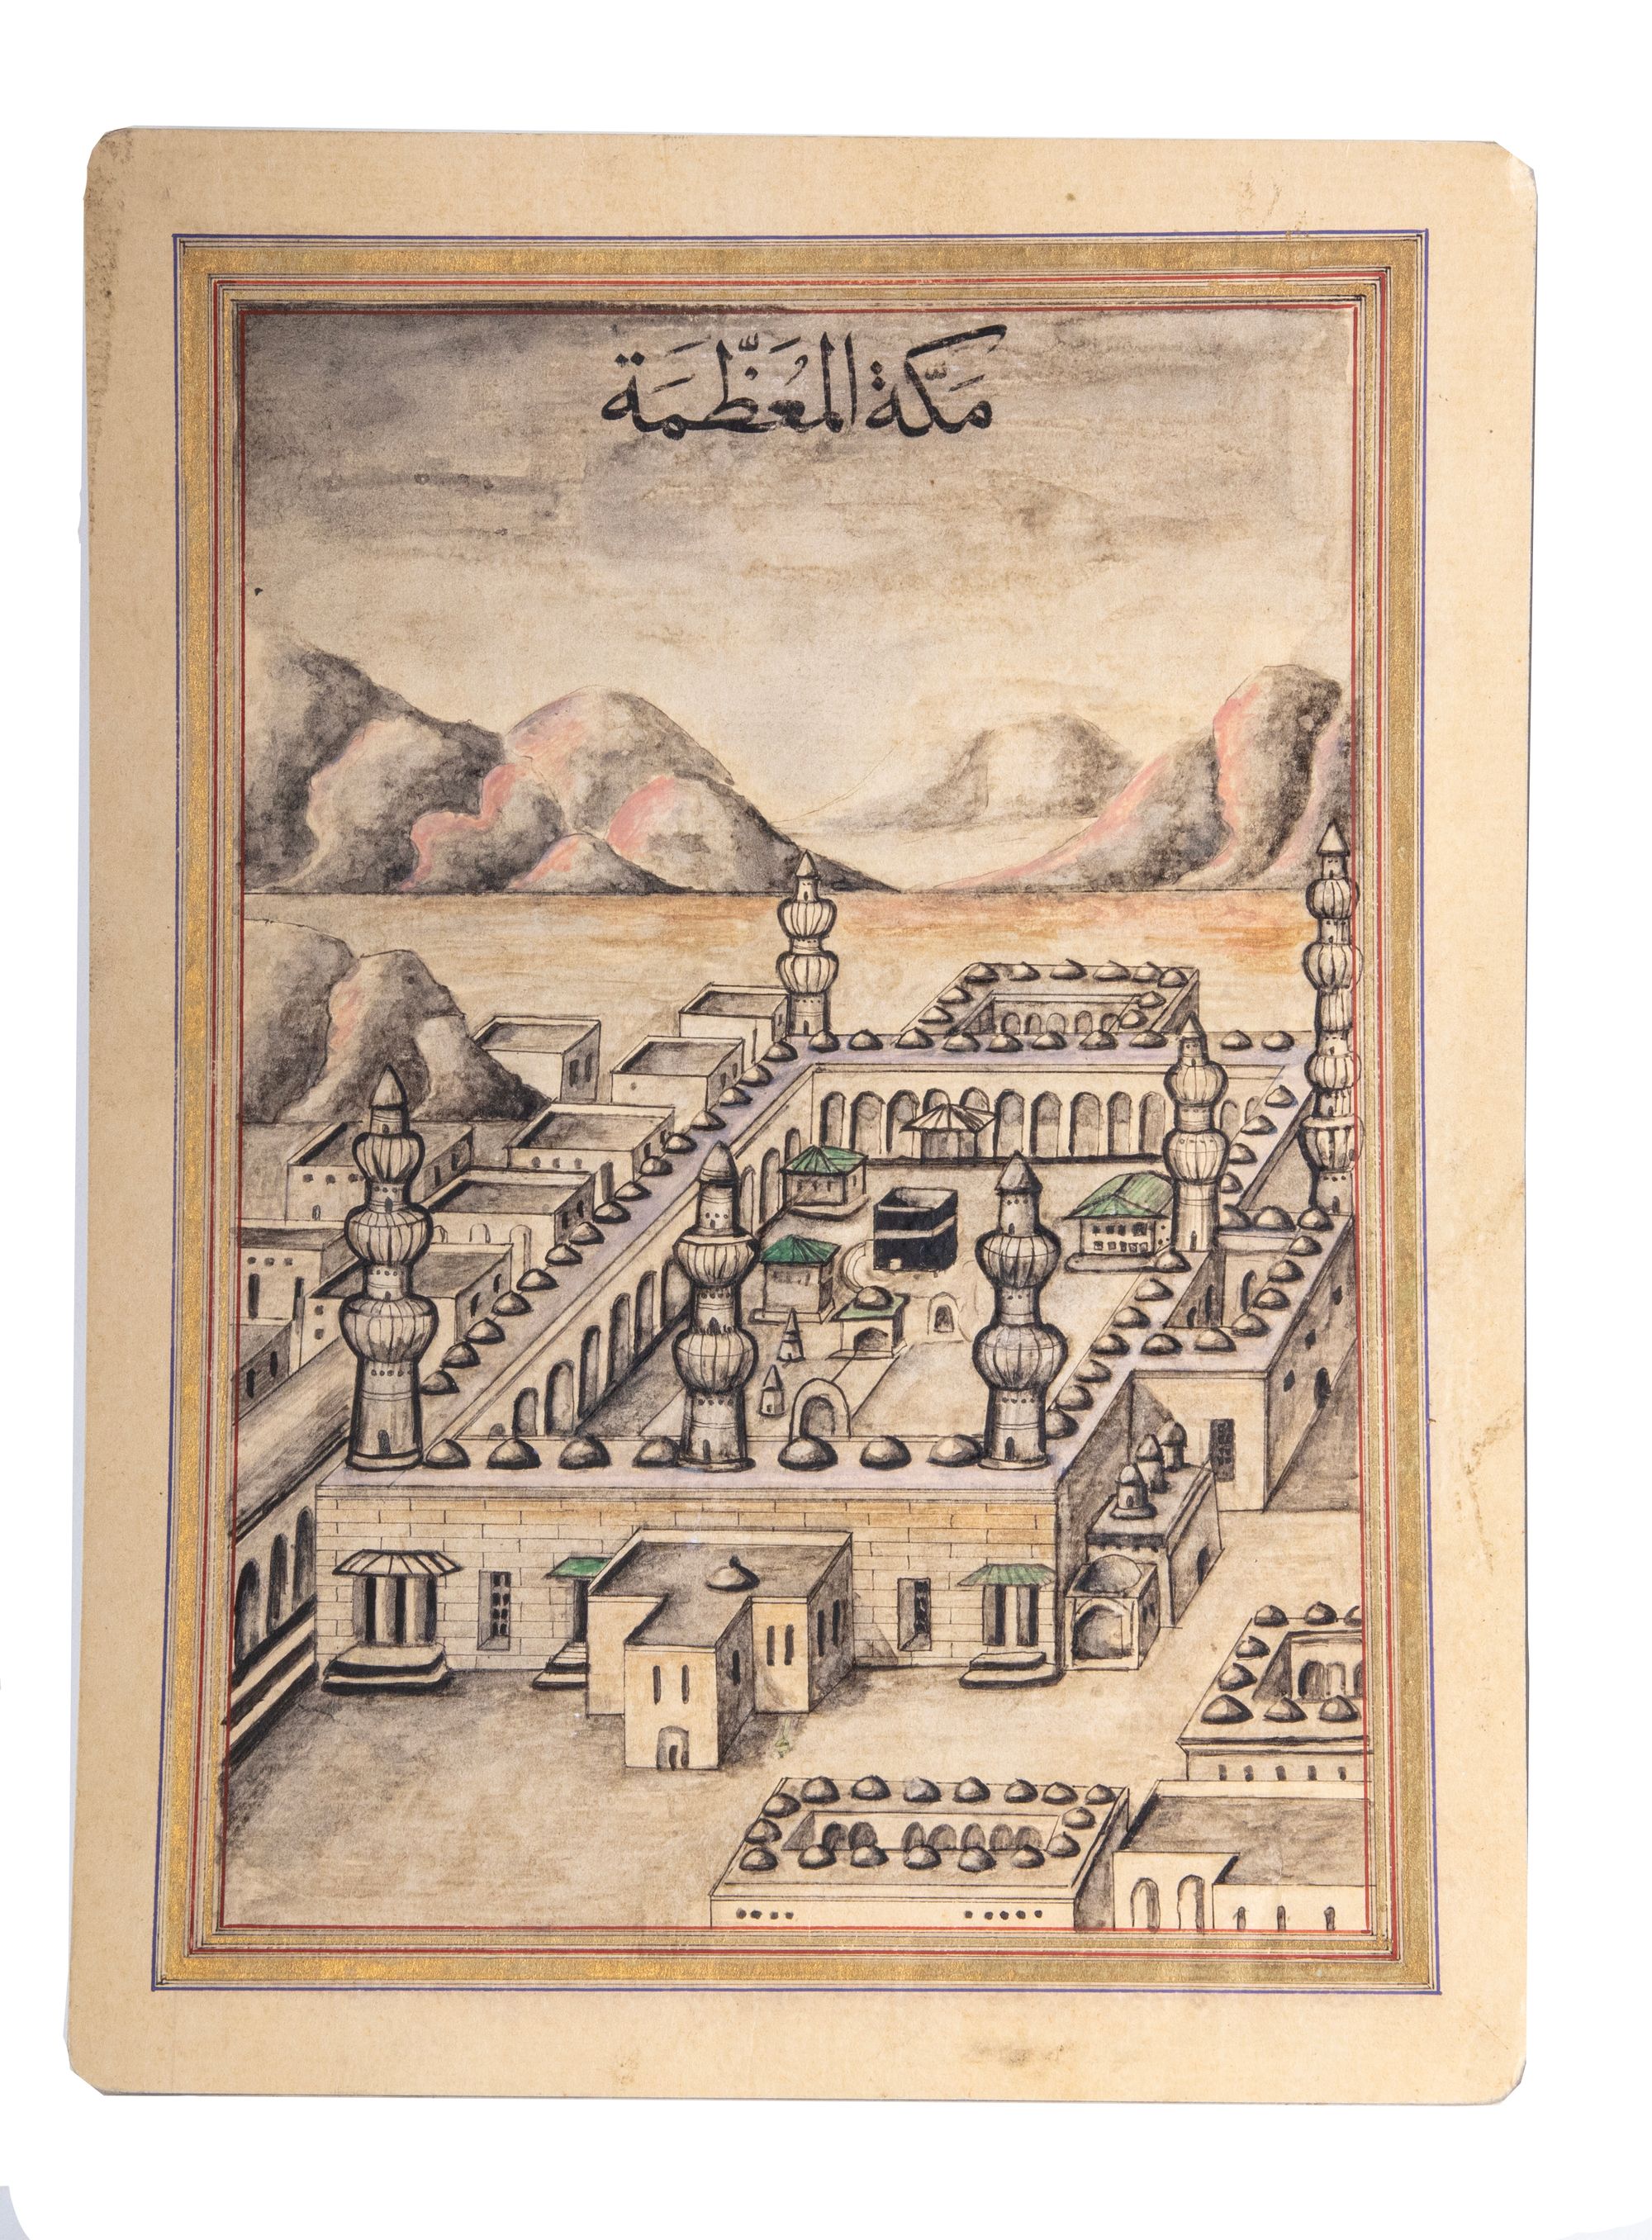 مَكَّة المُعَظَّمَة